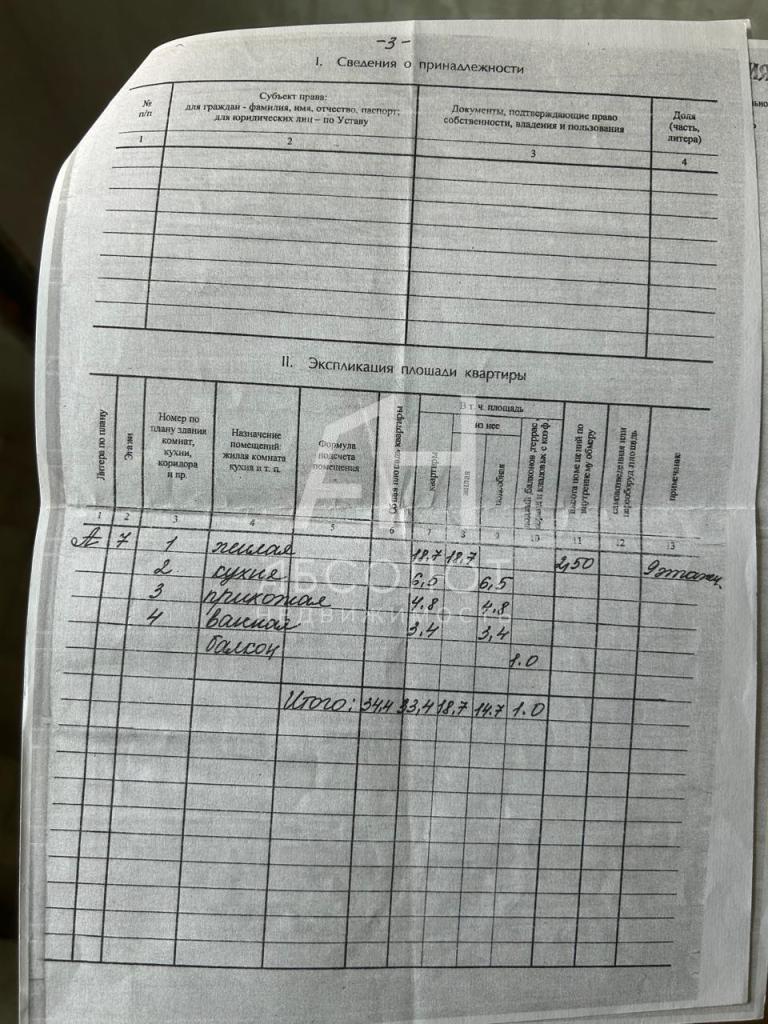 -3-
I. Сведения о принадлежности
№ п/п
Субъект права:
для граждан - фамилия, имя, отчество, паспорт;
для юридических лиц – по Уставу
Документы, подтверждающие право
собственности, владения и пользования
Доля
(часть,
литера)
1 2 3 4
II. Экспликация площади квартиры
Литера по плану
Этажи
Номер по
плану здания
комнат,
кухни,
коридора
и пр.
Назначение
помещений:
жилая комната
кухня и т. п.
Формула
подсчета
помещения
площадь квартиры
В т. ч. площадь
квартиры
из нее
жилая
подсобная
балконов, террас
с коэф.
высота помещений по
внутреннему обмеру
самовозведенная или
переоборуд. площадь
примечание
1 2 3 4 5 6 7 8 9 10 11 12 13
А 7 1 жилая 18,7 18,7 2,50 9 этажн.
2 кухня 6,5 6,5
3 прихожая 4.8 4.8
4 ванная 3,4 3,4
балкон 1.0
Итого: 34,4 33,4 18,7 14.7 1.0
АН
АБСОЛЮТ
НЕДВИЖИМОСТЬ